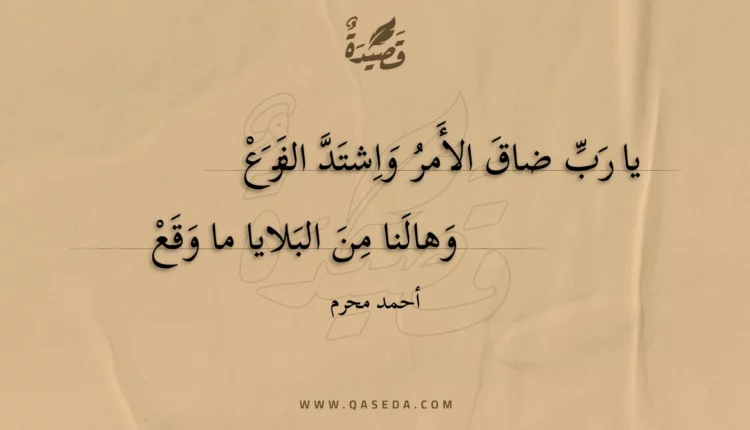 قَصِيْدَةٌ
يا رَبِّ ضاقَ الأَمرُ وَاِشتَدَّ الفَزَعْ
وَهالَنا مِنَ البَلايا ما وَقَعْ
أحمد محرم
WWW.QASEDA.COM